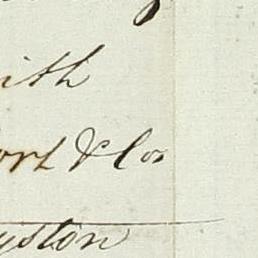 ith
ort & Co
yston